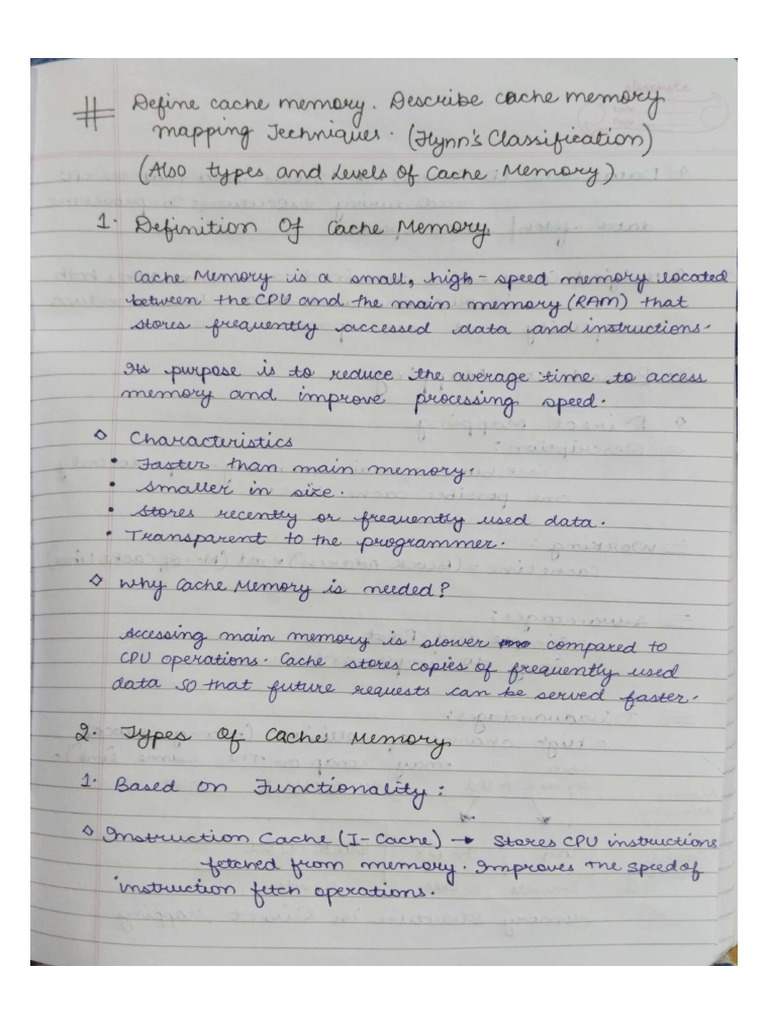 # Define cache memory. Describe cache memory
mapping Techniques. (Flynn's Classification)
(Also types and Levels Of Cache Memory)
1. Definition Of Cache Memory
Cache Memory is a small, high-speed memory located
between the CPU and the main memory (RAM) that
stores frequently accessed data and instructions.
Its purpose is to reduce the average time to access
memory and improve processing speed.
◇ Characteristics
• Faster than main memory.
• Smaller in size.
• Stores recently or frequently used data.
• Transparent to the programmer.
◇ Why Cache Memory is needed?
Accessing main memory is slower compared to
CPU operations. Cache stores copies of frequently used
data so that future requests can be served faster.
2. Types Of Cache Memory
1. Based on Functionality:
◇ Instruction Cache (I-Cache) → Stores CPU instructions
fetched from memory. Improves the speed of
instruction fetch operations.